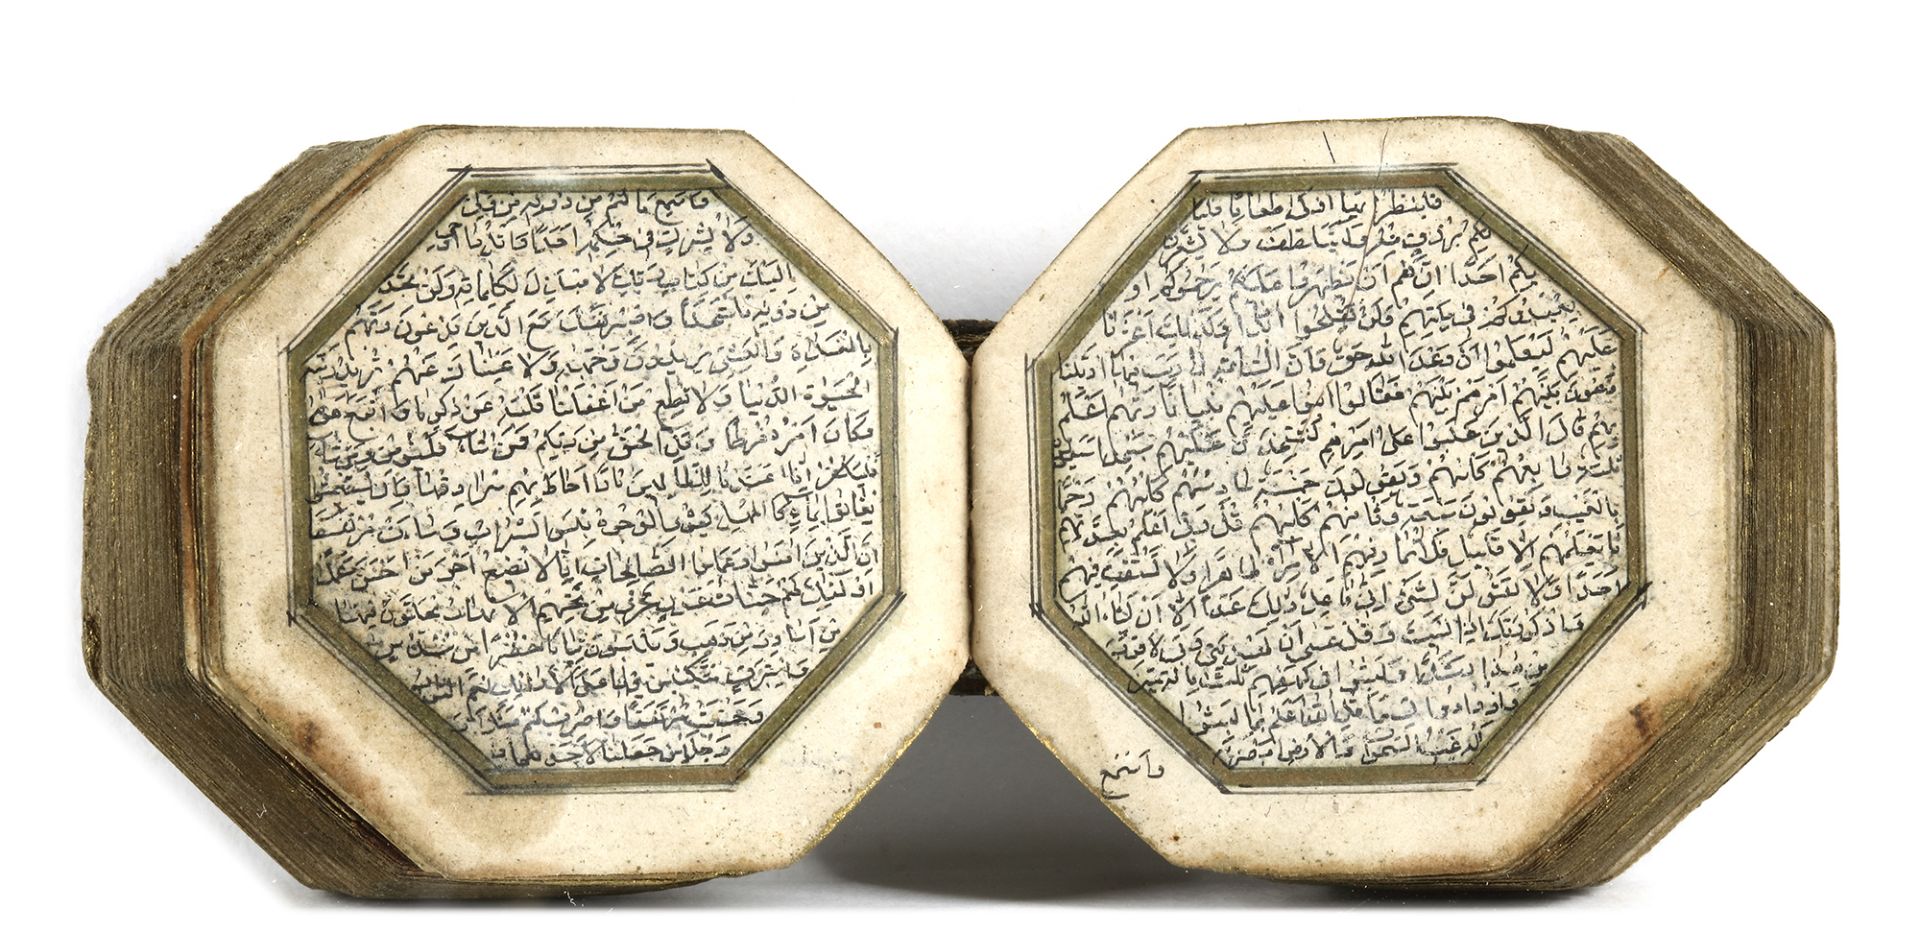 فلينظر ايها ازكى طعاما فليا
تكم برزق منه وليتلطف ولا يشعرن
بكم احدا انهم ان يظهروا عليكم يرجموكم او
يعيدوكم في ملتهم ولن تفلحوا اذا وكذلك اعثرنا
عليهم ليعلموا ان وعد الله حق وان الساعة لا ريب فيها اذ يتنا
زعون بينهم امرهم فقالوا ابنوا عليهم بنيانا ربهم اعلم
بهم قال الذين غلبوا على امرهم لنتخذن عليهم مسجدا سيقولون
ثلثة رابعهم كلبهم ويقولون خمسة سادسهم كلبهم رجما
بالغيب ويقولون سبعة وثامنهم كلبهم قل ربي اعلم بعدتهم
ما يعلمهم الا قليل فلا تمار فيهم الا مراء ظاهرا ولا تستفت فيهم
احدا ولا تقولن لشيء اني فاعل ذلك غدا الا ان يشاء
واذكر ربك اذا نسيت وقل عسى ان يهدين ربي لاقرب
من هذا رشدا ولبثوا في كهفهم ثلث مائة سنين
وازدادوا تسعا قل الله اعلم بما لبثوا
له غيب السموات والارض ابصر به
واسمع
واسمع ما لهم من دونه من ولي
ولا يشرك في حكمه احدا واتل ما اوحي
اليك من كتاب ربك لا مبدل لكلماته ولن تجد
من دونه ملتحدا واصبر نفسك مع الذين يدعون ربهم
بالغداة والعشي يريدون وجهه ولا تعد عيناك عنهم تريد زينة
الحيوة الدنيا ولا تطع من اغفلنا قلبه عن ذكرنا واتبع هواه
وكان امره فرطا وقل الحق من ربكم فمن شاء فليؤمن ومن شاء
فليكفر انا اعتدنا للظالمين نارا احاط بهم سرادقها وان يستغيثوا
يغاثوا بماء كالمهل يشوي الوجوه بئس الشراب وساءت مرتفقا
ان الذين امنوا وعملوا الصالحات انا لا نضيع اجر من احسن عملا
اولئك لهم جنات عدن تجري من تحتهم الانهار يحلون فيها
من اساور من ذهب ويلبسون ثيابا خضرا من سندس
واستبرق متكئين فيها على الارائك نعم الثواب
وحسنت مرتفقا واضرب لهم مثلا
رجلين جعلنا لاحدهما